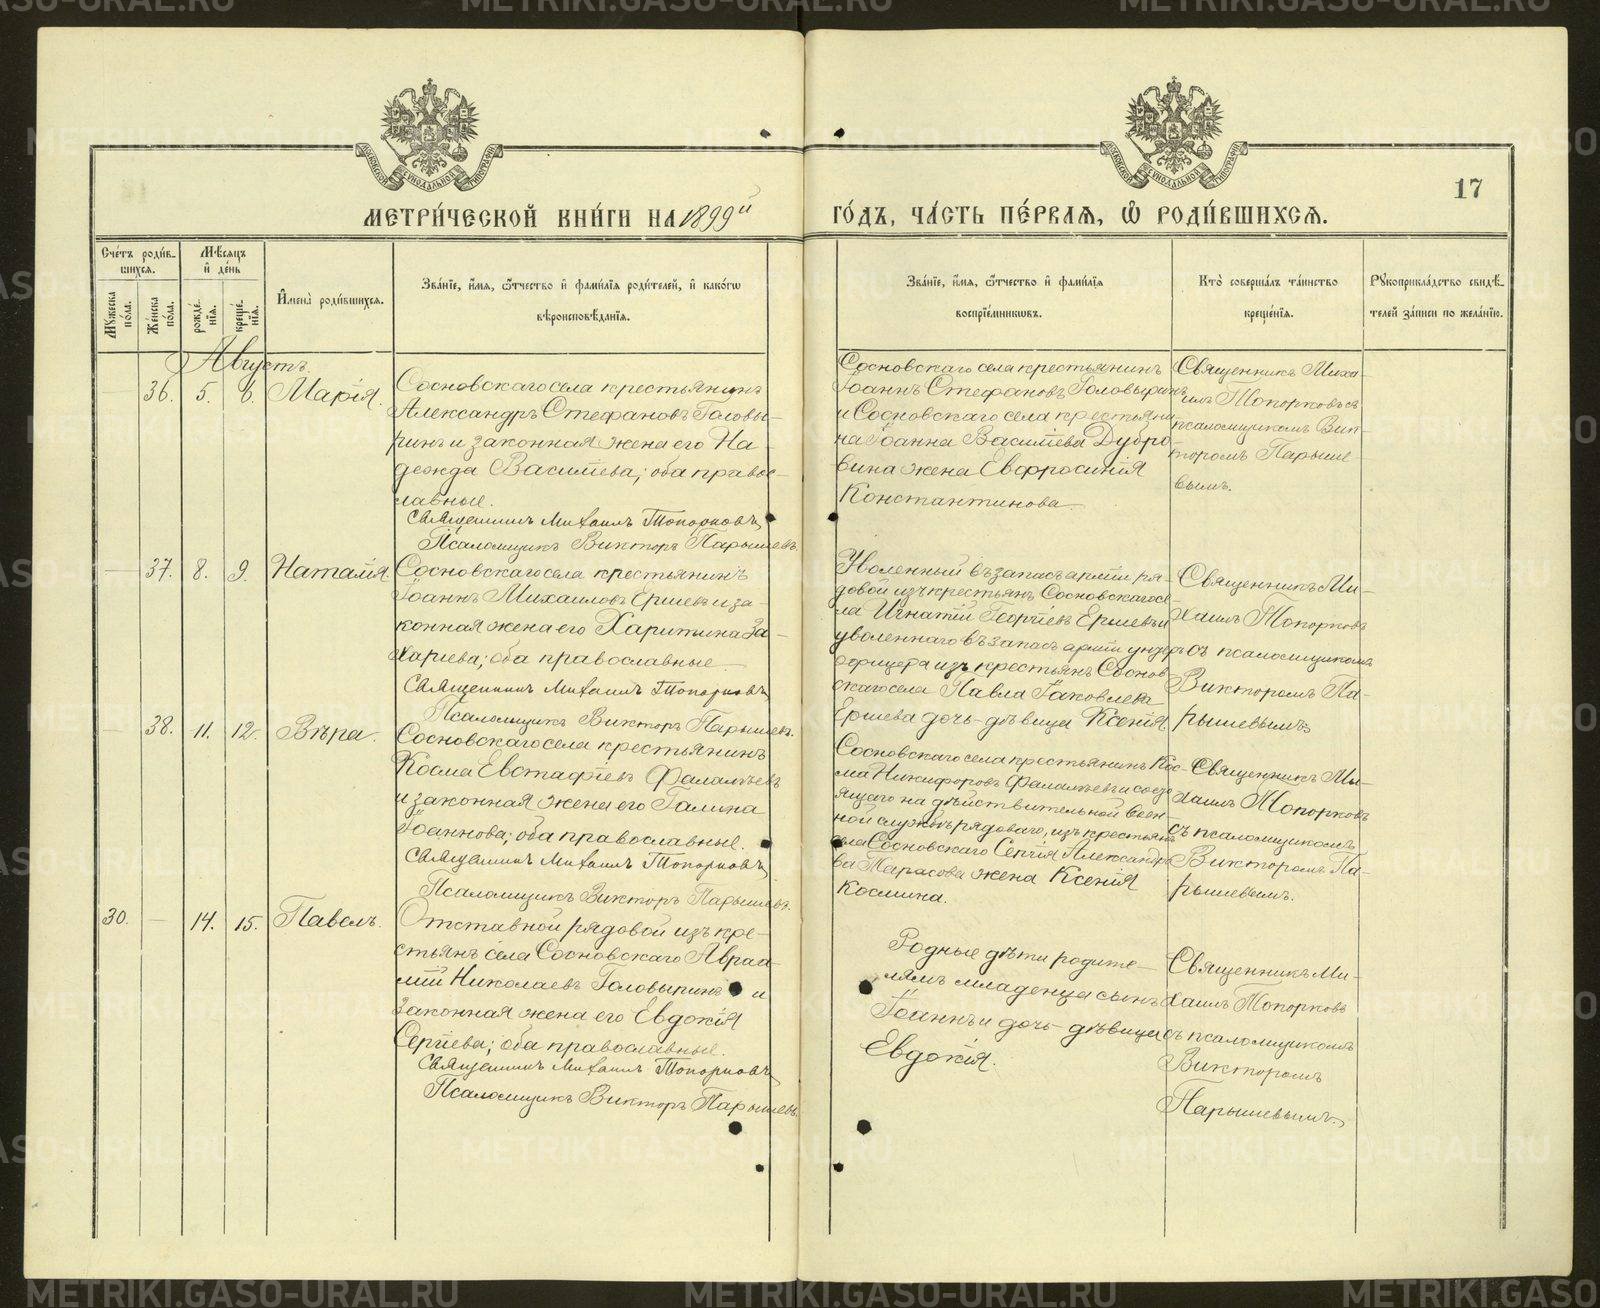 17
МЕТРИ́ЧЕСКОЙ КНИ́ГИ НА 1899й
ГО́ДЪ, ЧА́СТЬ ПЕ́РВАЯ, Ѡ҆ РОДИ́ВШИХСЯ.
Сче́тъ роди́в-
шихся.
Мꙋ́жеска по́ла.
Же́нска по́ла.
Мѣ́сяцъ
и҆ де́нь
рожде́-
нїя.
креще́-
нїя.
И҆мена̀ роди́вшихся.
Зва́нїе, и҆́мя, ѻ҆́тчество и҆ фами́лїя роди́телей, и҆ како́гѡ
вѣроисповѣ́данїя.
Зва́нїе, и҆́мя, ѻ҆́тчество и҆ фами́лїя
воспрїе́мникѡвъ.
Кто̀ соверша́лъ та́инство
креще́нїя.
Рꙋкоприкла́дство свидѣ́-
телей за́писи по жела́нїю.
Августъ.
36.
5.
6.
Марія.
Сосновскаго села крестьянинъ
Александръ Стефановъ Головы-
ринъ и законная жена его На-
дежда Василіева; оба право-
славные.
Священникъ Михаилъ Топорковъ
Псаломщикъ Викторъ Парышевъ.
Сосновскаго села крестьянинъ
Іоаннъ Стефановъ Головыринъ
и Сосновскаго села крестьяни-
на Іоанна Василіева Дубро-
вина жена Евфросинія
Константинова.
Священникъ Миха-
илъ Топорковъ съ
псаломщикомъ Вик-
торомъ Парыше-
вымъ.
37.
8.
9.
Наталія.
Сосновскаго села крестьянинъ
Іоаннъ Михаиловъ Ершевъ и за-
конная жена его Харитина За-
харіева; оба православные.
Священникъ Михаилъ Топорковъ
Псаломщикъ Викторъ Парышевъ.
Уволенный въ запасъ арміи ря-
довой изъ крестьянъ Сосновскаго се-
ла Игнатій Георгіевъ Ершевъ и
уволеннаго въ запасъ арміи ундеръ
офицера изъ крестьянъ Соснов-
скаго села Павла Іаковлева
Ершева дочь-дѣвица Ксенія.
Священникъ Ми-
хаилъ Топорковъ
съ псаломщикомъ
Викторомъ Па-
рышевымъ
38.
11.
12.
Вѣра.
Сосновскаго села крестьянинъ
Косма Евстафіевъ Фалалѣевъ
и законная жена его Галина
Іоаннова; оба православные.
Священникъ Михаилъ Топорковъ
Псаломщикъ Викторъ Парышевъ.
Сосновскаго села крестьянинъ Кос-
ма Никифоровъ Фалалѣевъ и состо
ящаго на дѣйствительной воен-
ной службѣ рядоваго, изъ крестьянъ
села Сосновскаго Сергія Александро
ва Тарасова жена Ксенія
Космина.
Священникъ Ми-
хаилъ Топорковъ
съ псаломщикомъ
Викторомъ Па-
рышевымъ.
30.
14.
15.
Павелъ.
Отставной рядовой изъ кре-
стьянъ села Сосновскаго Авраа-
мій Николаевъ Головыринъ и
законная жена его Евдокія
Сергіева; оба православные.
Священникъ Михаилъ Топорковъ
Псаломщикъ Викторъ Парышевъ.
Родные дѣти родите-
лямъ младенца сынъ
Іоаннъ и дочь-дѣвица
Евдокія.
Священникъ Ми-
хаилъ Топорковъ
съ псаломщикомъ
Викторомъ
Парышевымъ.
METRIKI.GASO-URAL.RU